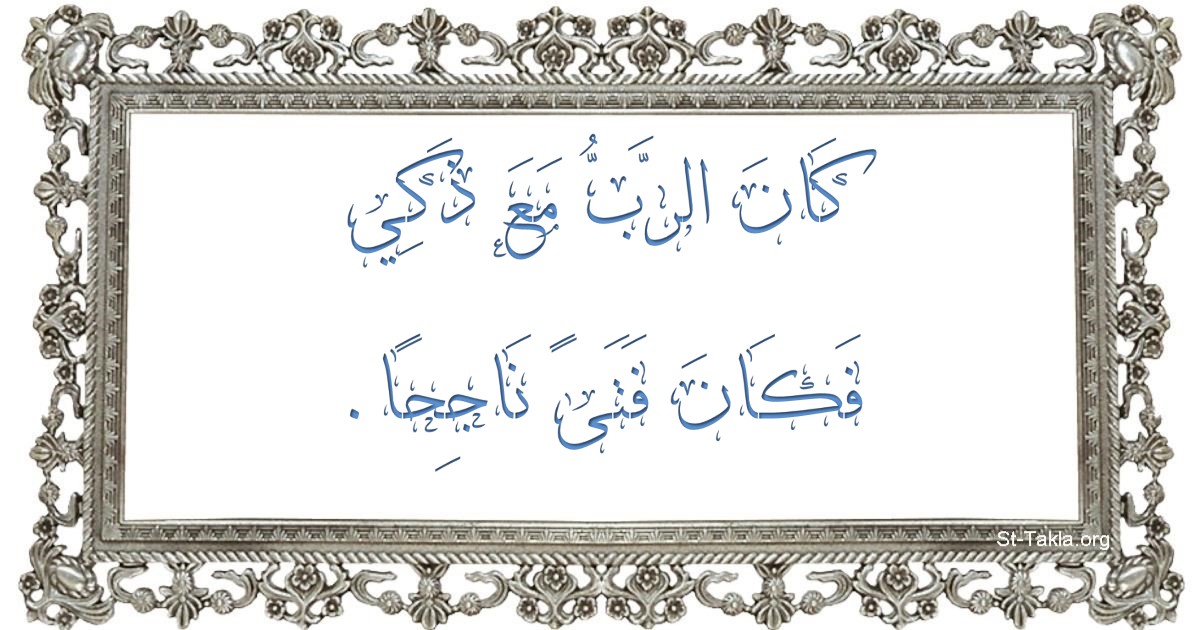 كَانَ الرَّبُّ مَعَ ذَكِي
فَكَانَ فَتَىً نَاجِحًا .
St-Takla.org